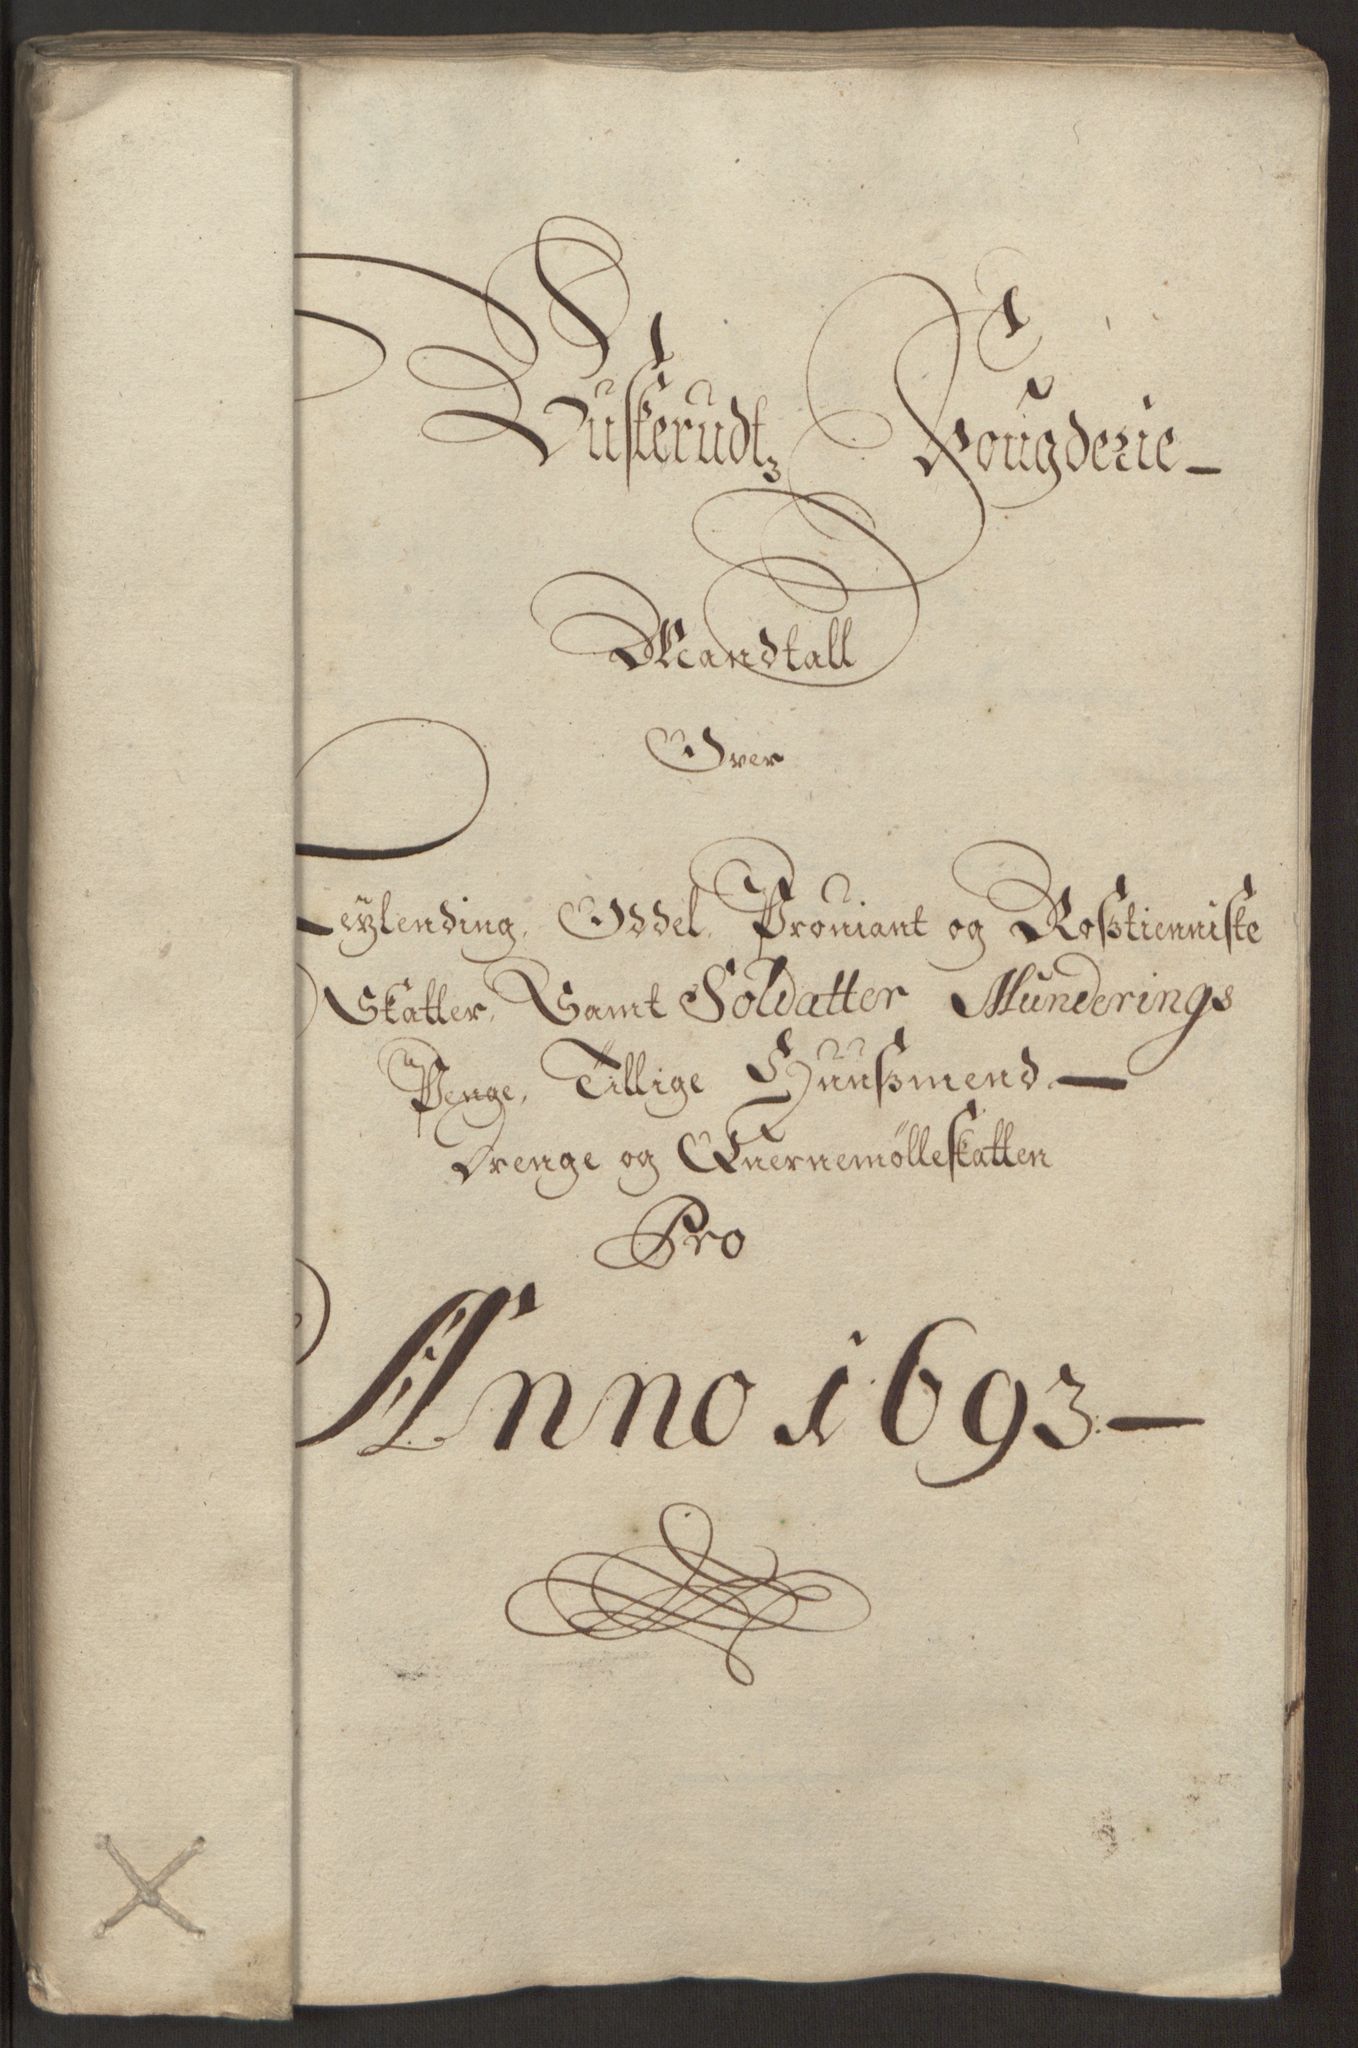 Buskerudtz Fougderie
Mandtall
Over
Leylending, Oddel, Prouiant og Roßtienniste
Skatter, Samt Soldatter Munderings
Penge, Tillige Huußmend
Drenge og Quernemølleskatten
Pro
Anno 1693